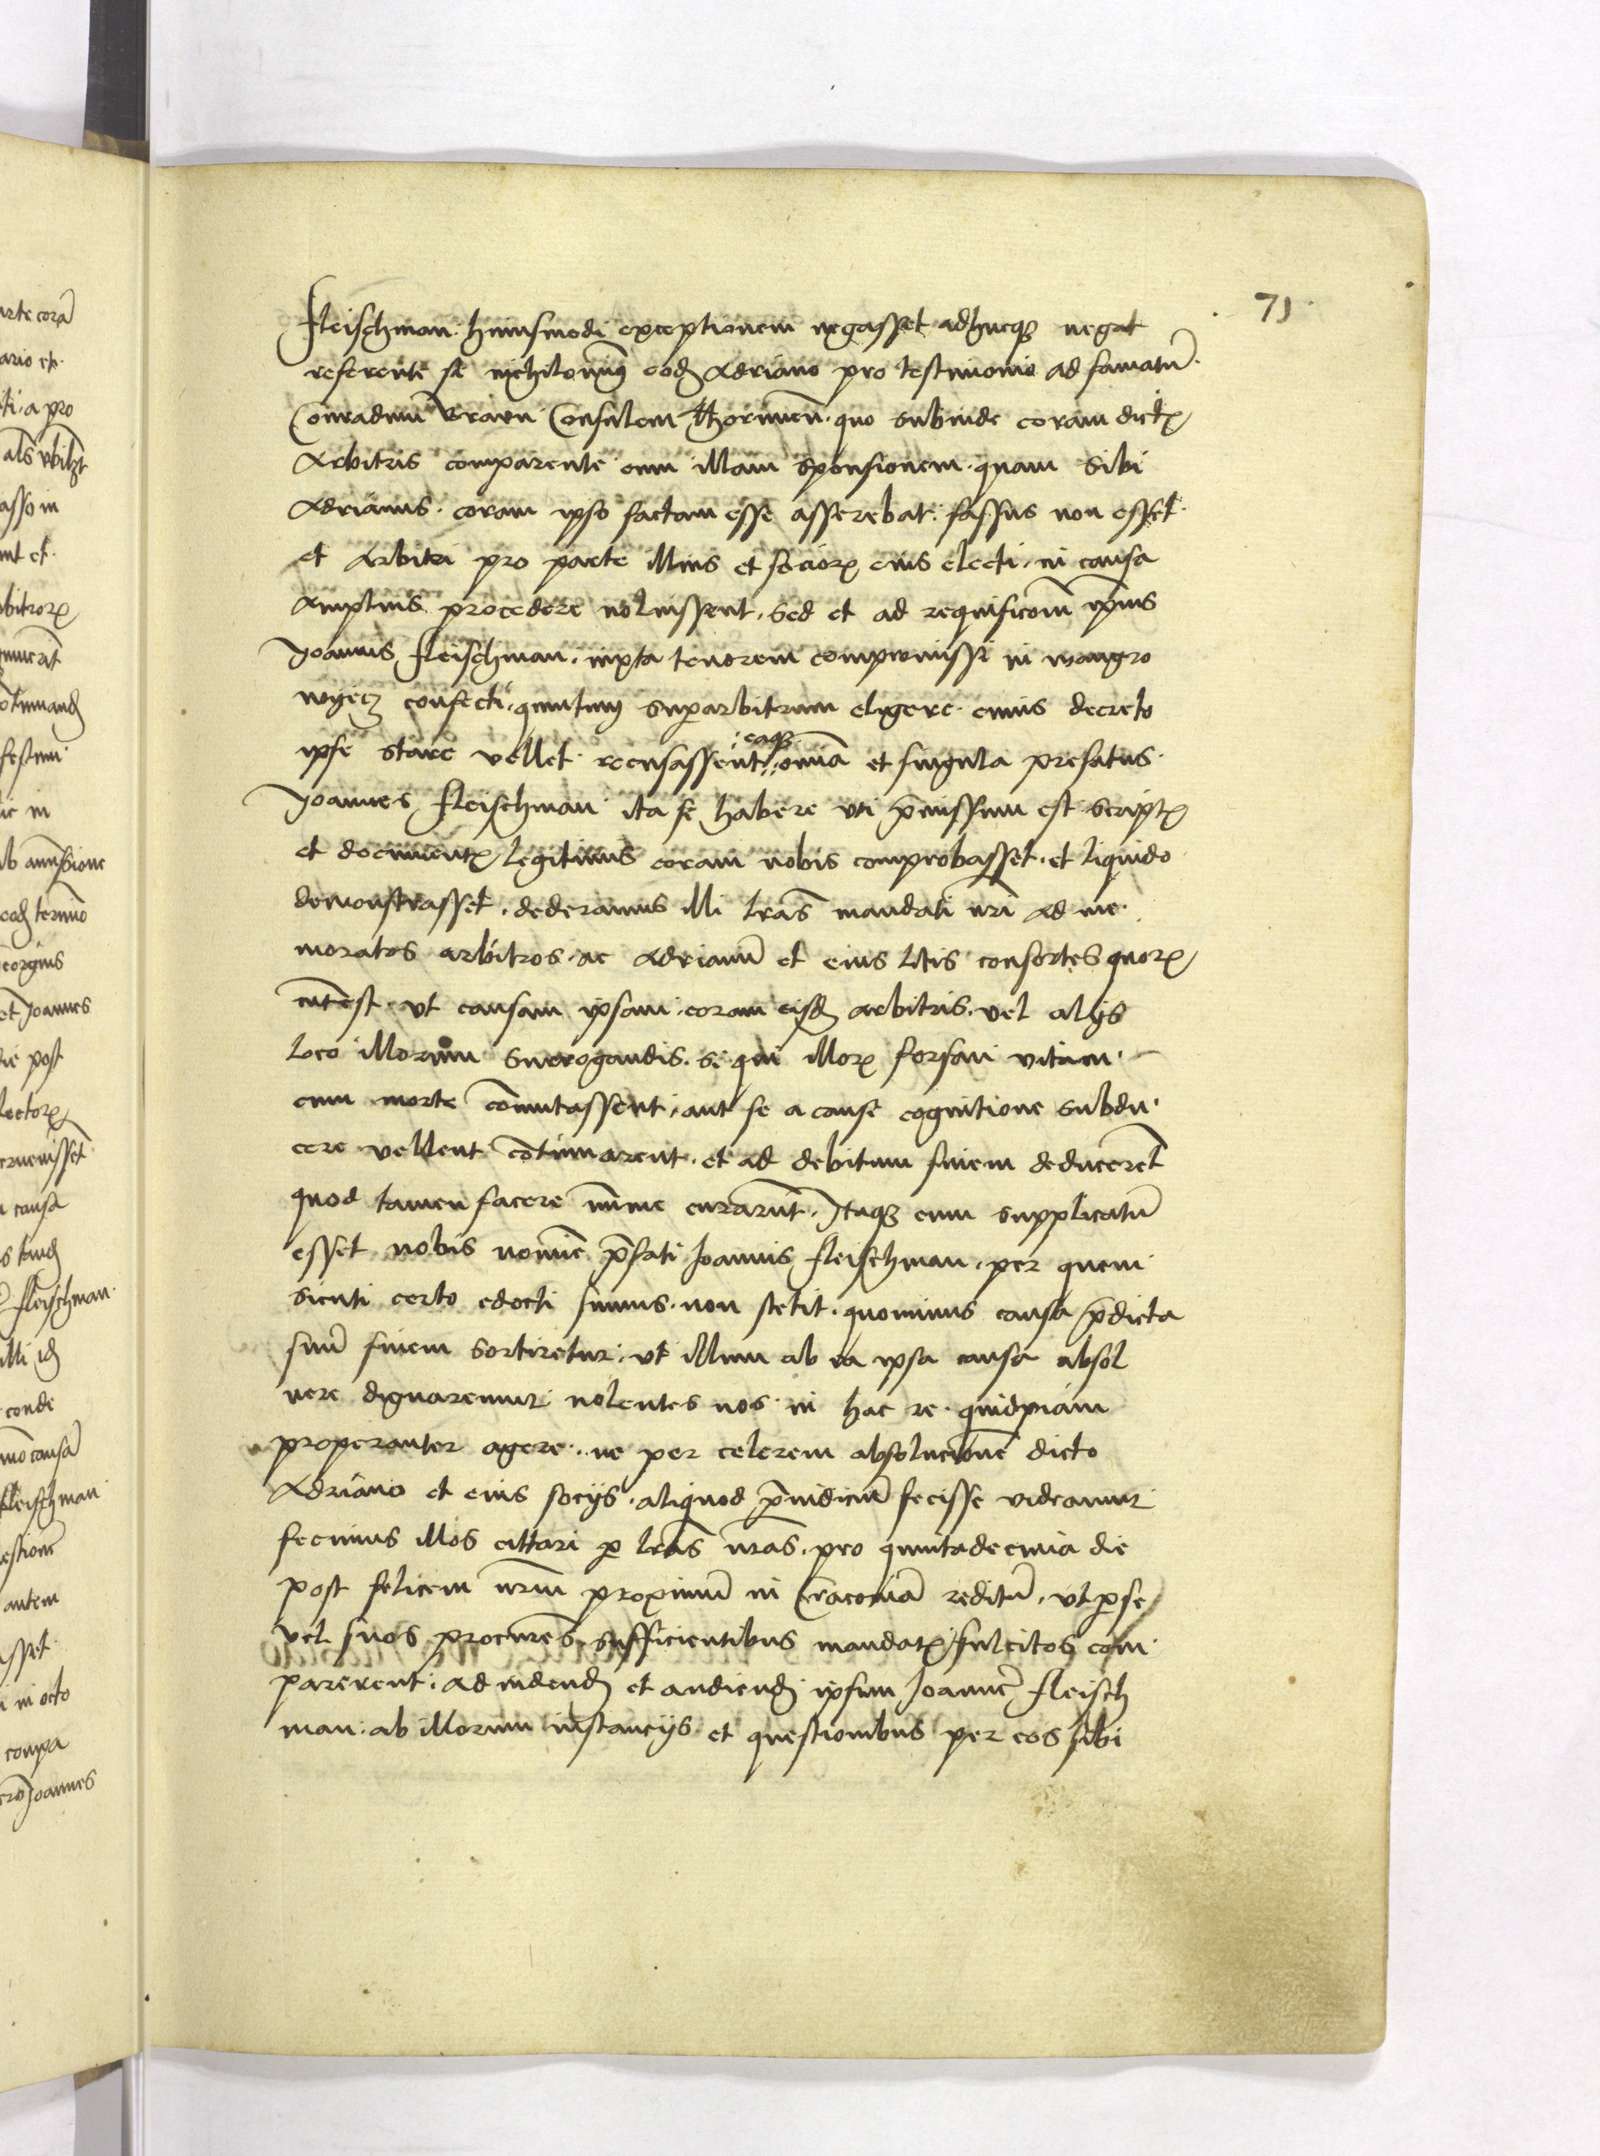 71
Fleischman. huiusmodi exceptionem negasset adhucq₃ negat
referente se nichilominꝰ eod₃ Adriano pro testimonio ad famatū
Conradum Coñsulem Thorunen̄. quo subinde coram dictꝭ
Arbitris comparente cum illam sponsionem. quam sibi
Adrianus. coram ipso factam esse asserebat. fassus non esset.
et Arbitri pro parte illius et socioꝝ eius electi. in causa
Amplius procedere noluissent. sed et ad requisicōm ip̄ius
Joannis Fleischman. iuxta tenorem compromissi in
confecti, quintum supārbitrum eligere cuius decreto
ipse stare vellet recusassent :eaq₃: om̄ia et singula prefatus.
Joannes Fleischman ita se habere vti p̄missum est scriptꝭ
et documentꝭ legitimis coram nobis comprobasset. et liquido
demonstrasset. dederamus illi lrās mandati nrī ad me.
moratos arbitros. ac Adrianū et eius litis consortes quoꝝ
intēst. vt causam ipsam. coram eisd₃ arbitris. vel alijs
loco illorum surrogandis. si qui illoꝝ forsan vitam.
cum morte cōmutassent. aut se a cause cognitione subdu.
cere vellent cōtinuarent. et ad debitum finem deducerēt
quod tamen facere mīme curarūt. Itaq₃ cum supplicatū
esset nobis nomīe p̄fati Joannis Fleischman. per quem
sicuti certo edocti sumus. non stetit. quominus causa p̄dicta
suū finem sortiretur. vt illum ab ea ipsa causa absol
uere dignaremur nolentes nos in hac re quidpiam
properanter agere. ne per celerem absolucionē dicto
Adriano et eius socijs. aliquod p̄iudiciū fecisse videamur
fecimus illos cittari ꝑ lrās nrās. pro quintadecima die
post felicem nrm̄ proximū in Cracouiā reditū. vt ꝑ se
vel suos procurēs sufficientibus mandatꝭ fulcitos com
parerent. ad videnđ et audienđ ipsum Joannē Fleisch
man. ab illorum instancijs et questionibus per eos sibi